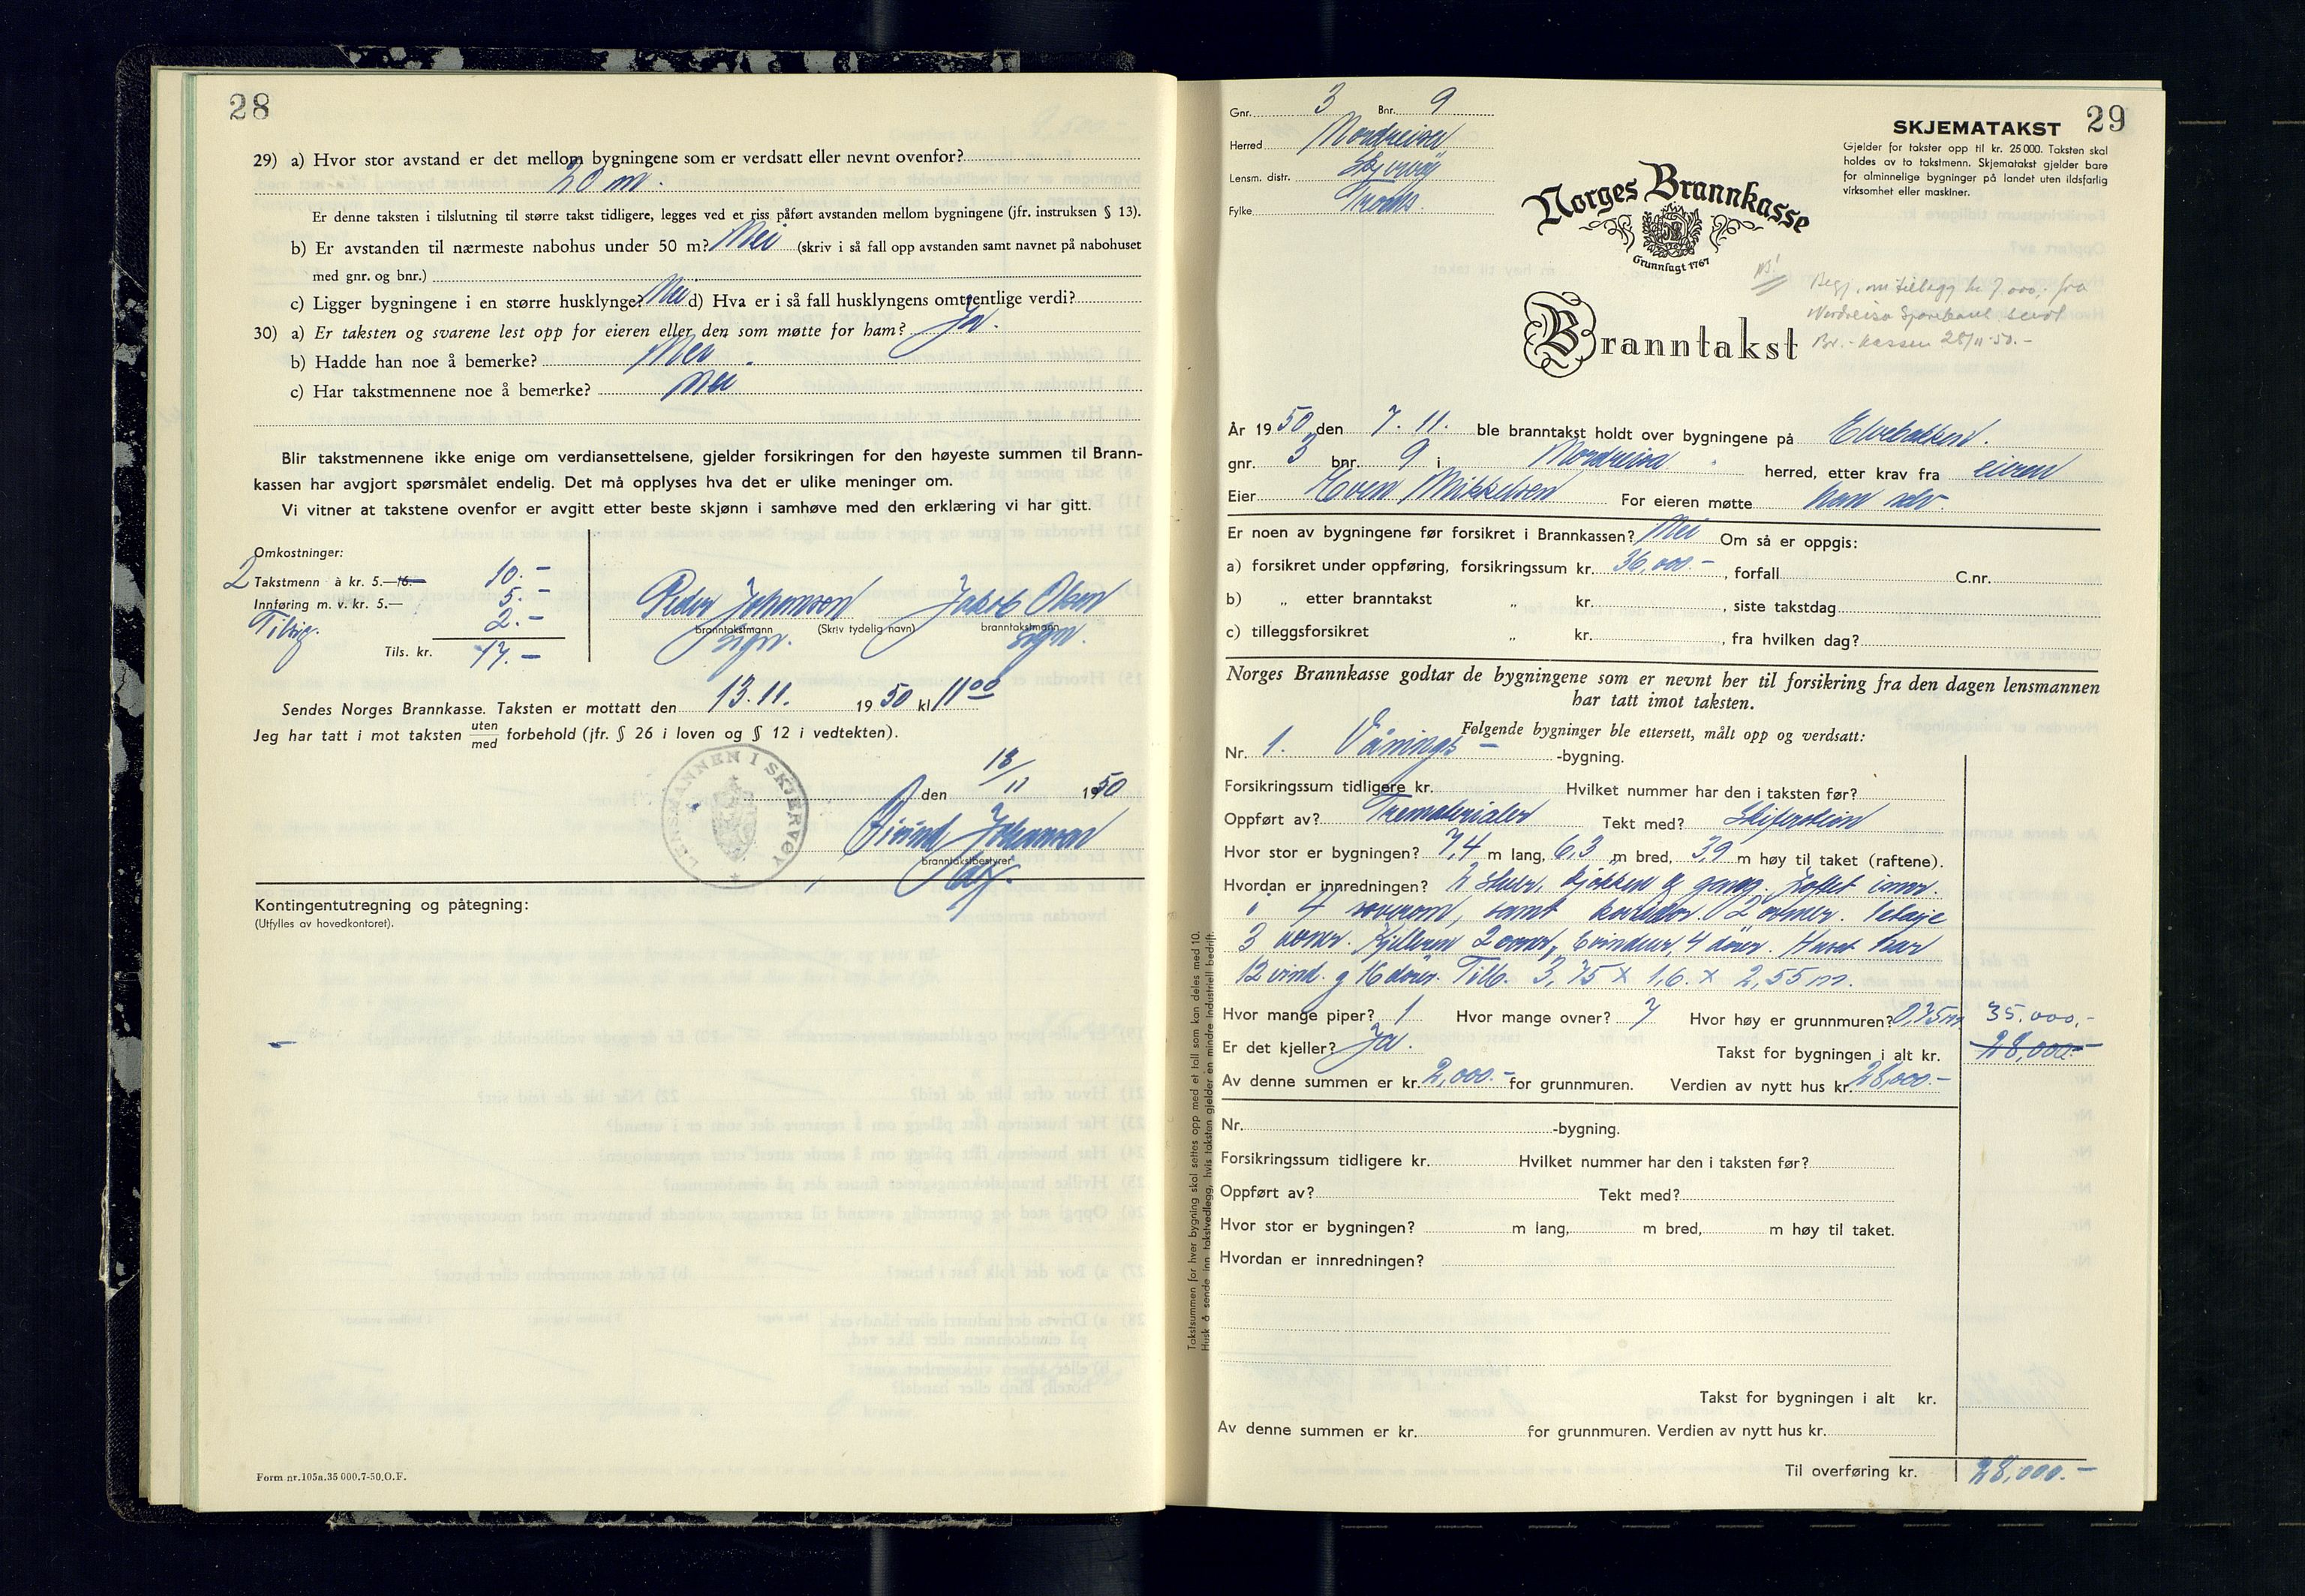 28
29) a) Hvor stor avstand er det mellom bygningene som er verdsatt eller nevnt ovenfor?
20 m.
Er denne taksten i tilslutning til større takst tidligere, legges ved et riss påført avstanden mellom bygningene (jfr. instruksen § 13).
b) Er avstanden til nærmeste nabohus under 50 m? Nei (skriv i så fall opp avstanden samt navnet på nabohuset
med gnr. og bnr.)
c) Ligger bygningene i en større husklynge? Nei d) Hva er i så fall husklyngens omtrentlige verdi?
30) a) Er taksten og svarene lest opp for eieren eller den som møtte for ham? Ja.
b) Hadde han noe å bemerke? Nei.
c) Har takstmennene noe å bemerke? Nei
Blir takstmennene ikke enige om verdiansettelsene, gjelder forsikringen for den høyeste summen til Brann-
kassen har avgjort spørsmålet endelig. Det må opplyses hva det er ulike meninger om.
Vi vitner at takstene ovenfor er avgitt etter beste skjønn i samhøve med den erklæring vi har gitt.
Omkostninger:
2 Takstmenn à kr. 5.—16.— 10.-
Innføring m. v. kr. 5.— 5.-
2.-
Tils. kr. 17.-
Peder Johansen Jakob Olsen
branntakstmann (Skriv tydelig navn) branntakstmann
sign. sign.
Sendes Norges Brannkasse. Taksten er mottatt den 13.11. 1950 kl 11 00
Jeg har tatt i mot taksten uten/med forbehold (jfr. § 26 i loven og § 12 i vedtekten).
LENSMANNEN I SKJERVØY
den 18/11 1950
Eivind Johansen
branntakstbestyrer
Kontingentutregning og påtegning:
(Utfylles av hovedkontoret).
Form nr.105a.35 000.7-50.O.F.
Gnr. 3 Bnr. 9
Herred Nordreisa
Lensm. distr. Skjervøy
Fylke Troms.
SKJEMATAKST 29
Gjelder for takster opp til kr. 25 000. Taksten skal
holdes av to takstmenn. Skjematakst gjelder bare
for alminnelige bygninger på landet uten ildsfarlig
virksomhet eller maskiner.
Norges Brannkasse
Grunnlagt 1767
NB!
Begj. om tillegg kr 7.000,- fra
Nordreisa Sparebank sendt
Br.-kassen 28/11-50.-
Branntakst
År 1950 den 7.11. ble branntakst holdt over bygningene på Elvebakken.
gnr. 3 bnr. 9 i Nordreisa herred, etter krav fra eieren
Eier Mikkelsen For eieren møtte han selv.
Er noen av bygningene før forsikret i Brannkassen? Nei Om så er oppgis:
a) forsikret under oppføring, forsikringssum kr. 36,000.-, forfall C.nr.
b) „ etter branntakst „ kr. , siste takstdag
c) tilleggsforsikret „ kr. , fra hvilken dag?
Norges Brannkasse godtar de bygningene som er nevnt her til forsikring fra den dagen lensmannen
har tatt imot taksten.
Følgende bygninger ble ettersett, målt opp og verdsatt:
Nr. 1. Vånings- -bygning.
Forsikringssum tidligere kr. Hvilket nummer har den i taksten før?
Oppført av? Trematerialer Tekt med? Skiferstein
Hvor stor er bygningen? 7,4 m lang, 6,3 m bred, 3,9 m høy til taket (raftene).
Hvordan er innredningen? 2 stuer, kjøkken og gang. Loftet innr.
i 4 soverom, samt korridor. 2 ovner. 1 etasje
3 ovner. Kjelleren 2 ovner, 6 vinduer, 4 dører. Huset har
12 vind. og 16 dører. Tilb. 3,75 x 1,6. x 2,55 m.
Hvor mange piper? 1 Hvor mange ovner? 7 Hvor høy er grunnmuren? 0,35m 35.000,-
Er det kjeller? Ja. Takst for bygningen i alt kr. 28,000.-
Av denne summen er kr. 2,000.- for grunnmuren. Verdien av nytt hus kr. 28,000.-
Nr. -bygning.
Forsikringssum tidligere kr. Hvilket nummer har den i taksten før?
Oppført av? Tekt med?
Hvor stor er bygningen? m lang, m bred, m høy til taket.
Hvordan er innredningen?
Takst for bygningen i alt kr.
Av denne summen er kr. for grunnmuren. Verdien av nytt hus kr.
Til overføring kr. 28,000.-
Takstsummen for hver bygning skal settes opp med et tall som kan deles med 10.
Husk å sende inn takstvedlegg, hvis taksten gjelder en mindre industriell bedrift.